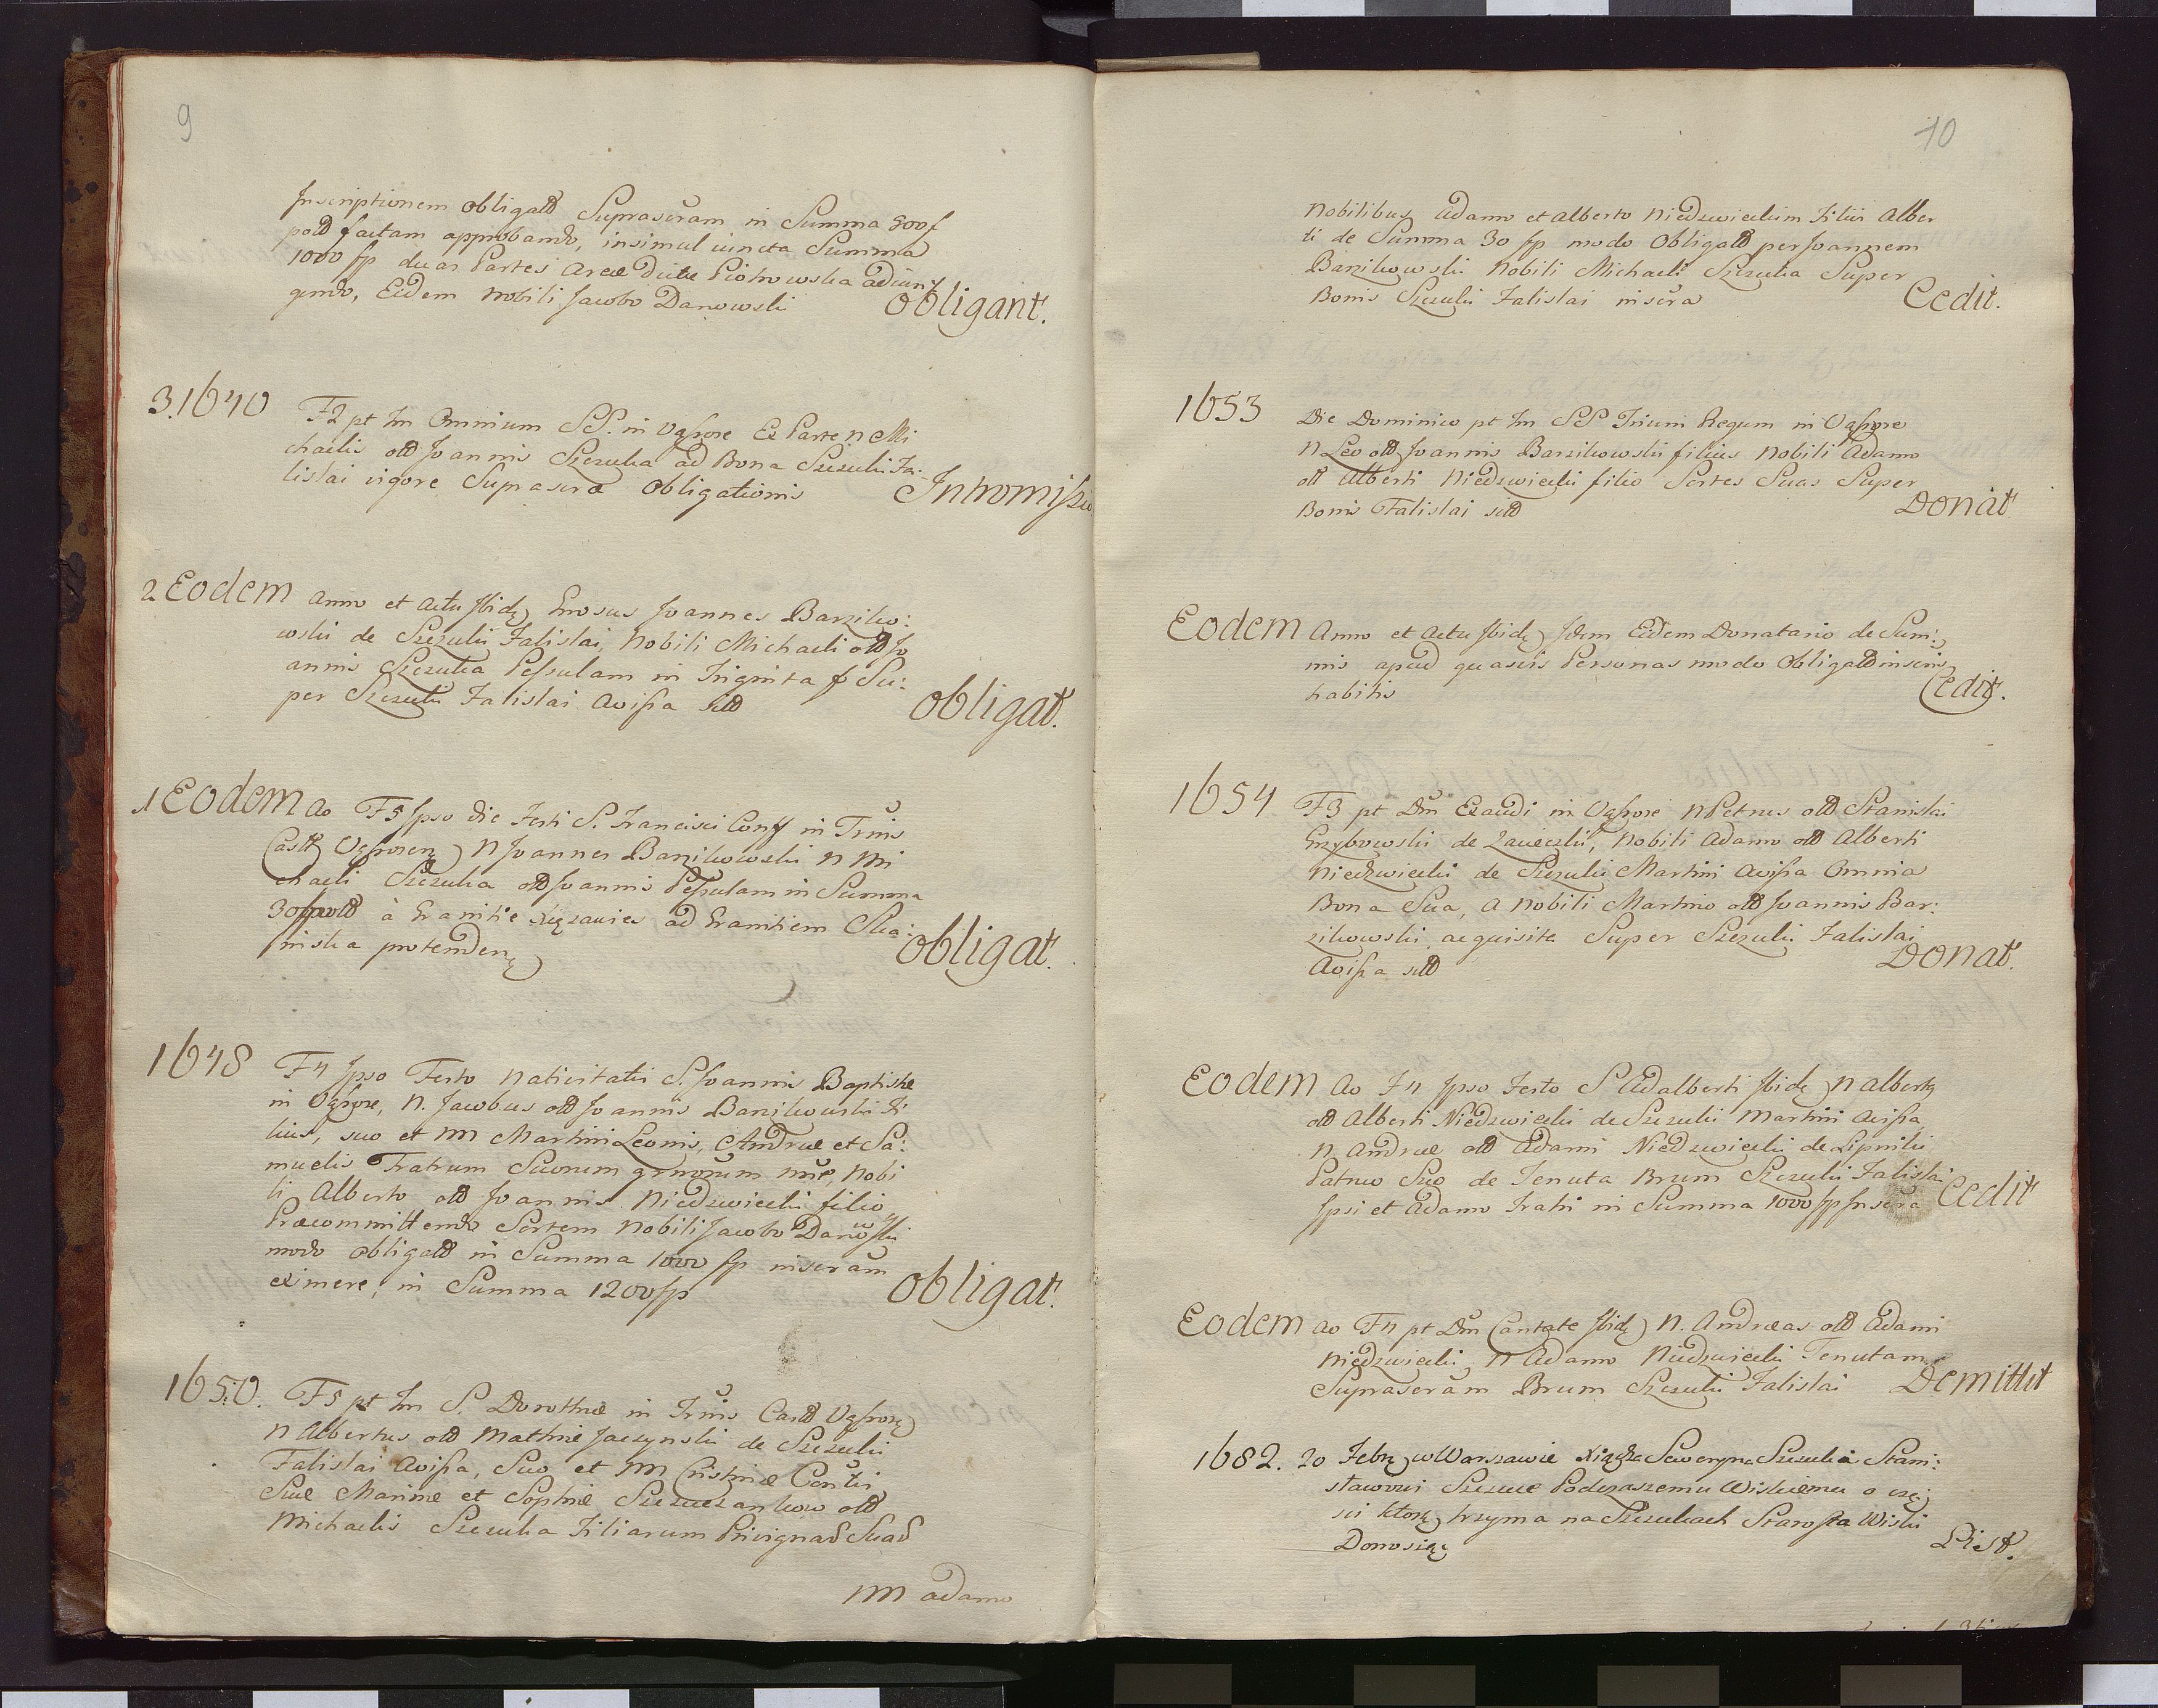 9
Inscriptionem obligatt Suprascram in Summa 500 f
poltt factam approbando, insimul iuncta Summa
1000 fp duas Partes Areæ dictæ Piotrowska adiun
gendo, Eidem Nobili Jacobo Danowski Obligant.
3. 1640 F2 pt fm Omnium SS. in Vąsosze Ex Parte N Mi
chaelis olt Joannis Szczuka ad Bona Szczuki Fa:
lisłai vigore Suprascræ Obligationis Intromissio
2 Eodem Anno et Actu Ibidę Grosus Joannes Barziko:
wski de Szczuki Falisłai, Nobili Michaeli olt Jo
annis Szczuka Pessulam in Triginta f Su:
per Szczuki Falisłai Avissa sitt Obligat.
1 Eodem Ao F5 Ipso Die Festi S. Francisci Conff in Tmis
Castr Vąssosen N Joannes Barzikowski N Mi
chaeli Szczuka olt Joannis Pessulam in Summa
30 fpoltt à Granitie ad Granitiem Ska:
inska protenden Obligat.
1648 F4 Ipso Festo Nativitatis S. Joannis Baptistæ
in Vąsosze, N. Jacobus olt Joannis Barzikowski fi
lius, suo et NN Martini Leonis, Andreæ et Sa:
muelis Fratrum Suorum grnorum nne, Nobi
li Alberto olt Joannis Niedzwiecki filio
Præcommittendo Sortem Nobili Jacobo Danowski
modo obligatt in Summa 1000 fp inscram
eximere, in Summa 1200 fp Obligat.
1650. F5 pt fm S. Dorotheæ in Tmis Castr Vąssosz
N Albertus olt Mathiæ Jaczynski de Szczuki
Falisłai Avissa, Suo et NN Cristinæ Contlis
Suæ Marinæ et Sophiæ Szczuczankow olt
Michaelis Szczuka Filiarum Privignar Suar
NN Adamo
10
Nobilibus Adamo et Alberto Niedzwieckim Filiis Alber
ti de Summa 30 fp modo Obligatt per Joannem
Barzikowski Nobili Michaeli Szczuka Super
Bonis Szczuki Falisłai inscra Cedit.
1653 Die Dominico pt fm SS Trium Regum in Vąsosze
N Leo olt Joannis Barzikowski filius Nobili Adamo
olt Alberti Niedzwiecki filio Sortes Suas Super
Bonis Falisłai sitt Donat
Eodem Anno et Actu Ibidę Idem Eidem Donatario de Sum:
mis apud quasvis Personas modo Obligatt inscris
habitis Cedit.
1654 F3 pt Dm Exaudi in Vąsosze N Petrus olt Stanislai
Grzybowski de Zawieczki, Nobili Adamo olt Alberti
Niedzwiecki de Szczuki Martini Avissa Omnia
Bona Sua, a Nobili Martino olt Joannis Bar:
zikowski acquisita Super Szczuki Falisłai
Avissa sitt Donat.
Eodem Ao F4 Ipso Festo S Adalberti Ibidę N Albertq
olt Alberti Niedzwiecki de Szczuki Martini Avissa
N Andreæ olt Adami Niedzwiecki de Lipniki
Patruo Suo de Tenuta Brum Szczuki Falisłai
Ipsi et Adamo Fratri in Summa 1000 fp Inscra Cedit
Eodem Ao F4 pt Dm Cantate Ibidę N. Andreas olt Adami
Niedzwiecki N Adamo Niedzwiecki Tenutam
Suprascram Brum Szczuki Falisłai Demittit
1682. 20 Febr w Warszawie Xiądza Seweryna Szczuki Stani:
sławowi Szczuce Podczaszemu Wiskiemu o czę
sci ktorą trzyma na Szczukach Starosta Wiski
Donosząc List.